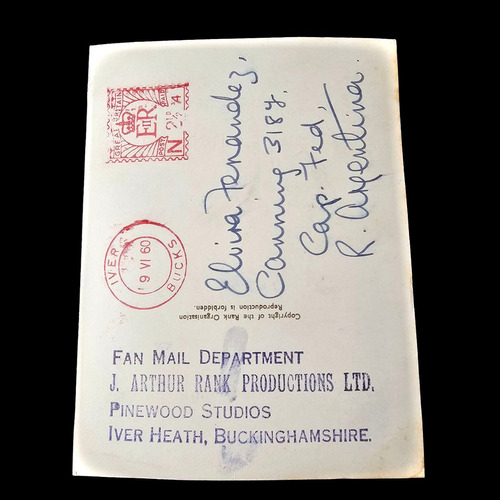 GREAT BRITAIN
POSTAGE
PAID
E II R
N 2½D A
IVER
9 VI 60
BUCKS
Elvira Fernandez,
Canning 3184.
Cap. Fed,
R. Argentina.
Copyright of the Rank Organisation
Reproduction is forbidden.
FAN MAIL DEPARTMENT
J. ARTHUR RANK PRODUCTIONS LTD.
PINEWOOD STUDIOS
IVER HEATH, BUCKINGHAMSHIRE.